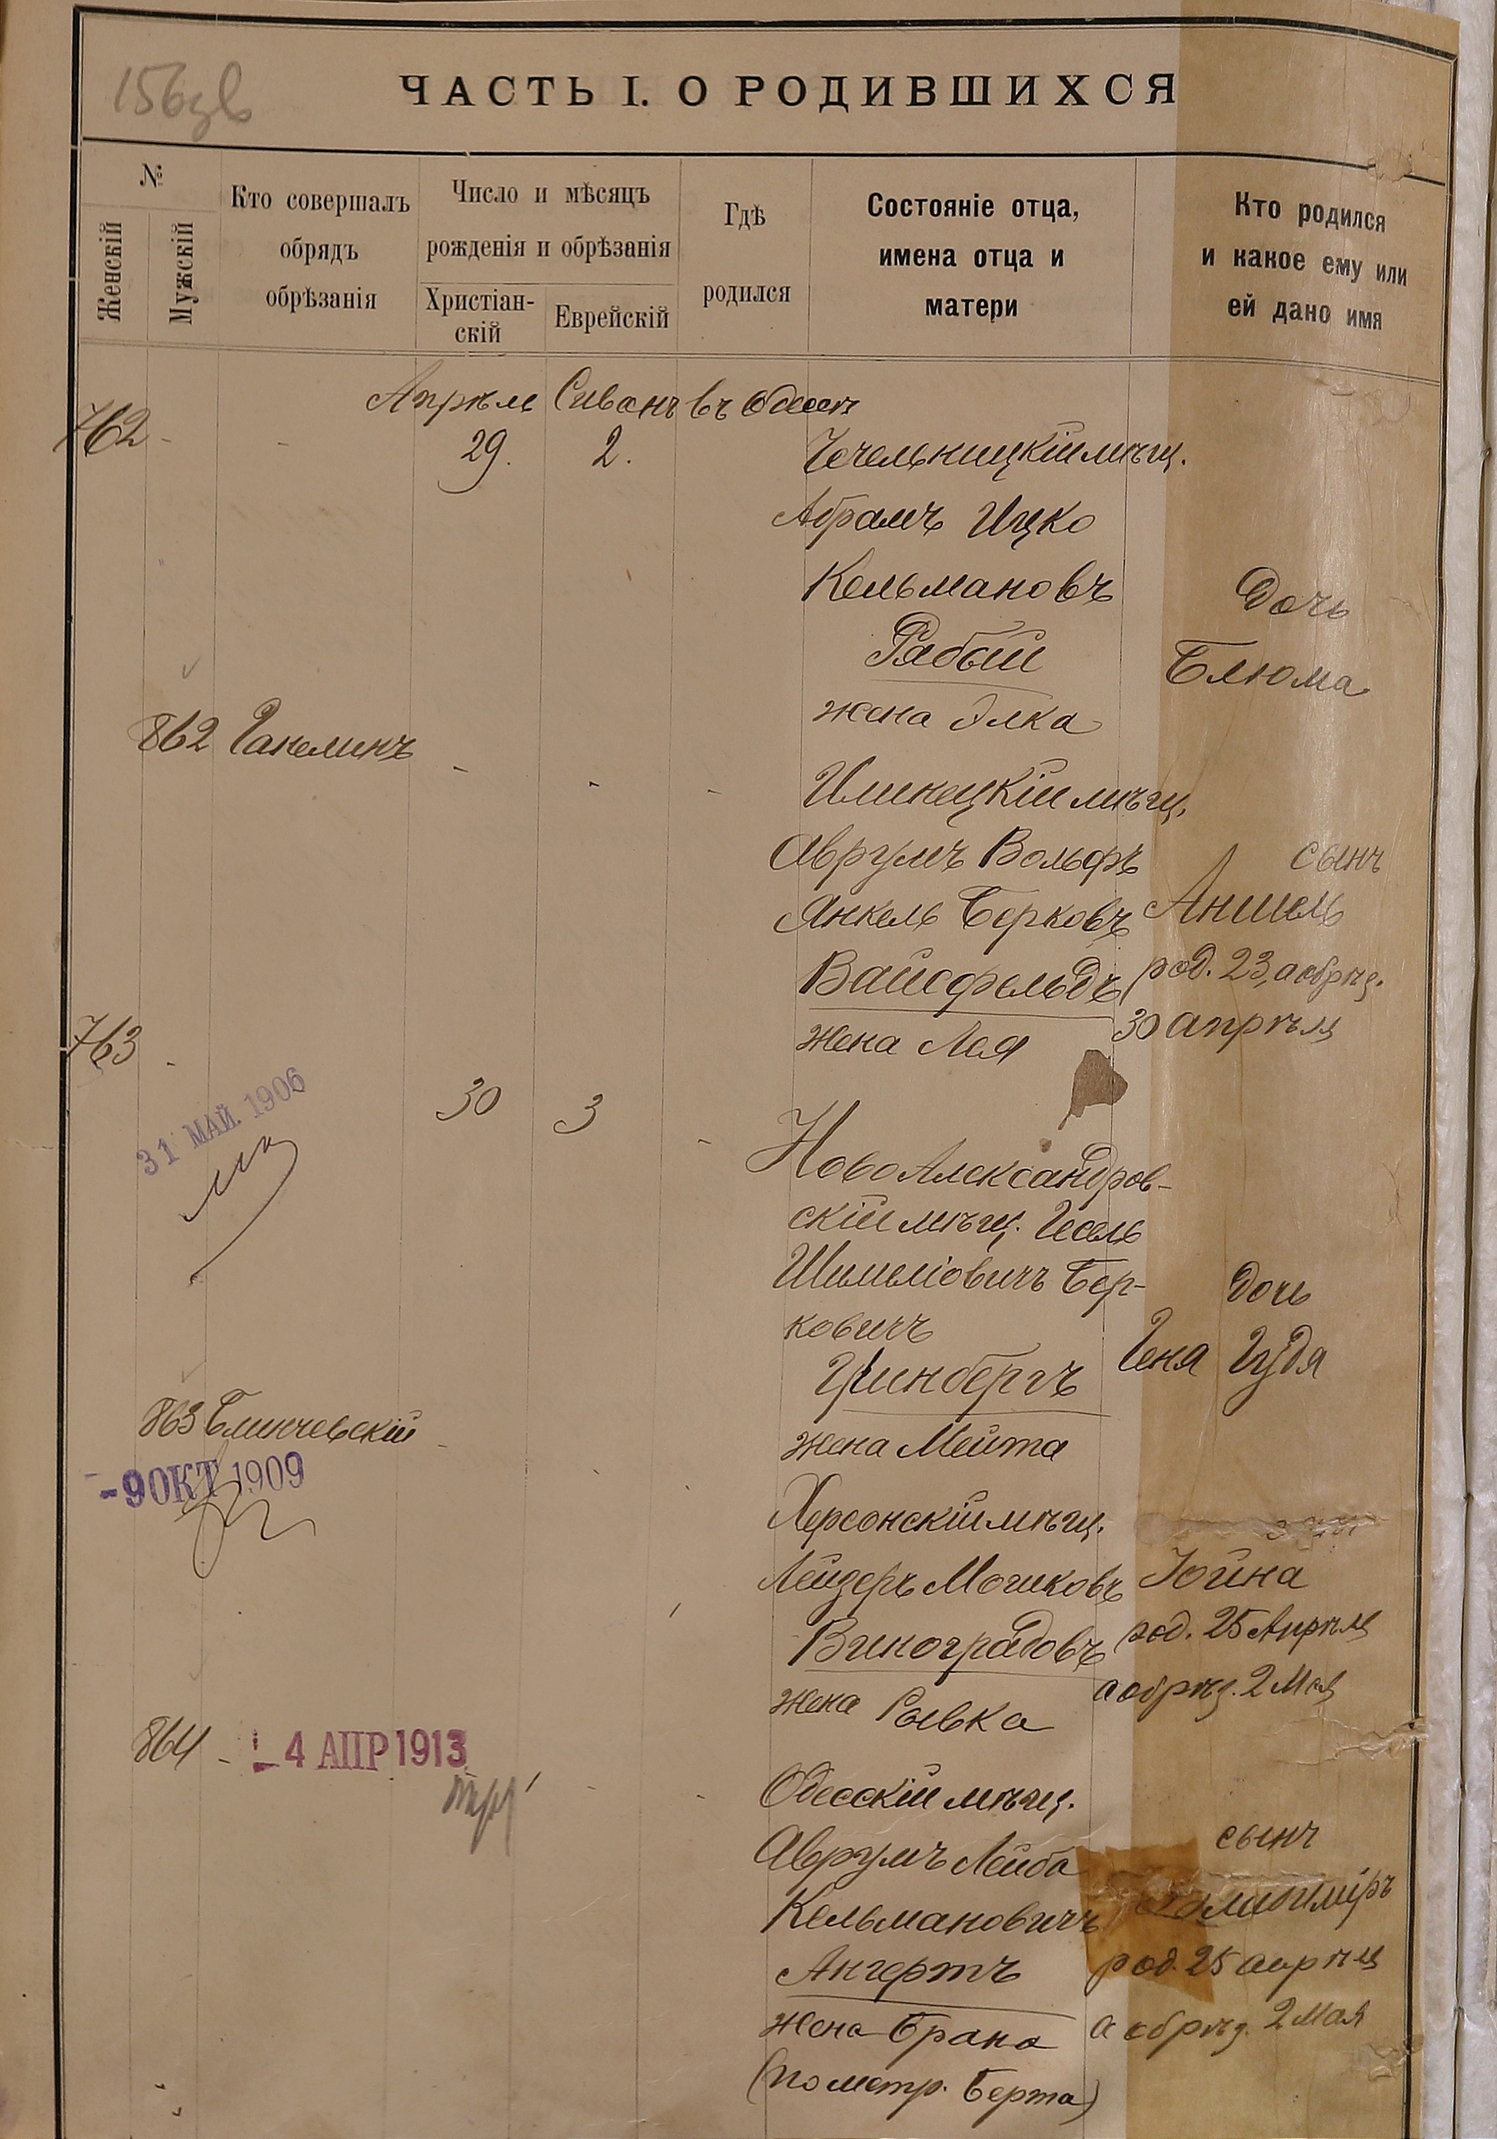 156 зв
ЧАСТЬ I. О РОДИВШИХСЯ
№
Женскій
Мужскій
Кто совершалъ
обрядъ
обрѣзанія
Число и мѣсяцъ
рожденія и обрѣзанія
Христіан-
скій
Еврейскій
Гдѣ
родился
Состояніе отца,
имена отца и
матери
Кто родился
и какое ему или
ей дано имя
Апрѣль Сиванъ въ Одессѣ
762 - - 29. 2. Чечельницкій мѣщ.
Абрамъ Ицко
Кельмановъ
Рябый
жена Элка
Дочь
Блюма
862 Ганелинъ - - -
Илинецкій мѣщ.
Аврумъ Вольфъ
Янкель Берковъ
Вайсфельдъ
жена Лея
сынъ
Аншель
род. 23, а обрѣз.
30 апрѣля
763 - 30 3 -
31 МАЙ 1906
НовоАлександров-
скій мѣщ. Іосель
Шмеліовичъ Бер-
ковичъ
Гринбергъ
жена Мейта
Дочь
Геня Гудя
863 Блинчевскій -
-9 ОКТ 1909
Херсонскій мѣщ.
Лейзеръ Мошковъ
Виноградовъ
жена Сывка
Іойна
род. 25 Апрѣля
а обрѣз. 2 Мая
864 - - 4 АПР 1913
Одесскій мѣщ.
Аврумъ Лейба
Кельмановичъ
Ангертъ
жена Брана
(по метр. Берта)
сынъ
род. 25 апрѣля
а обрѣз. 2 Мая